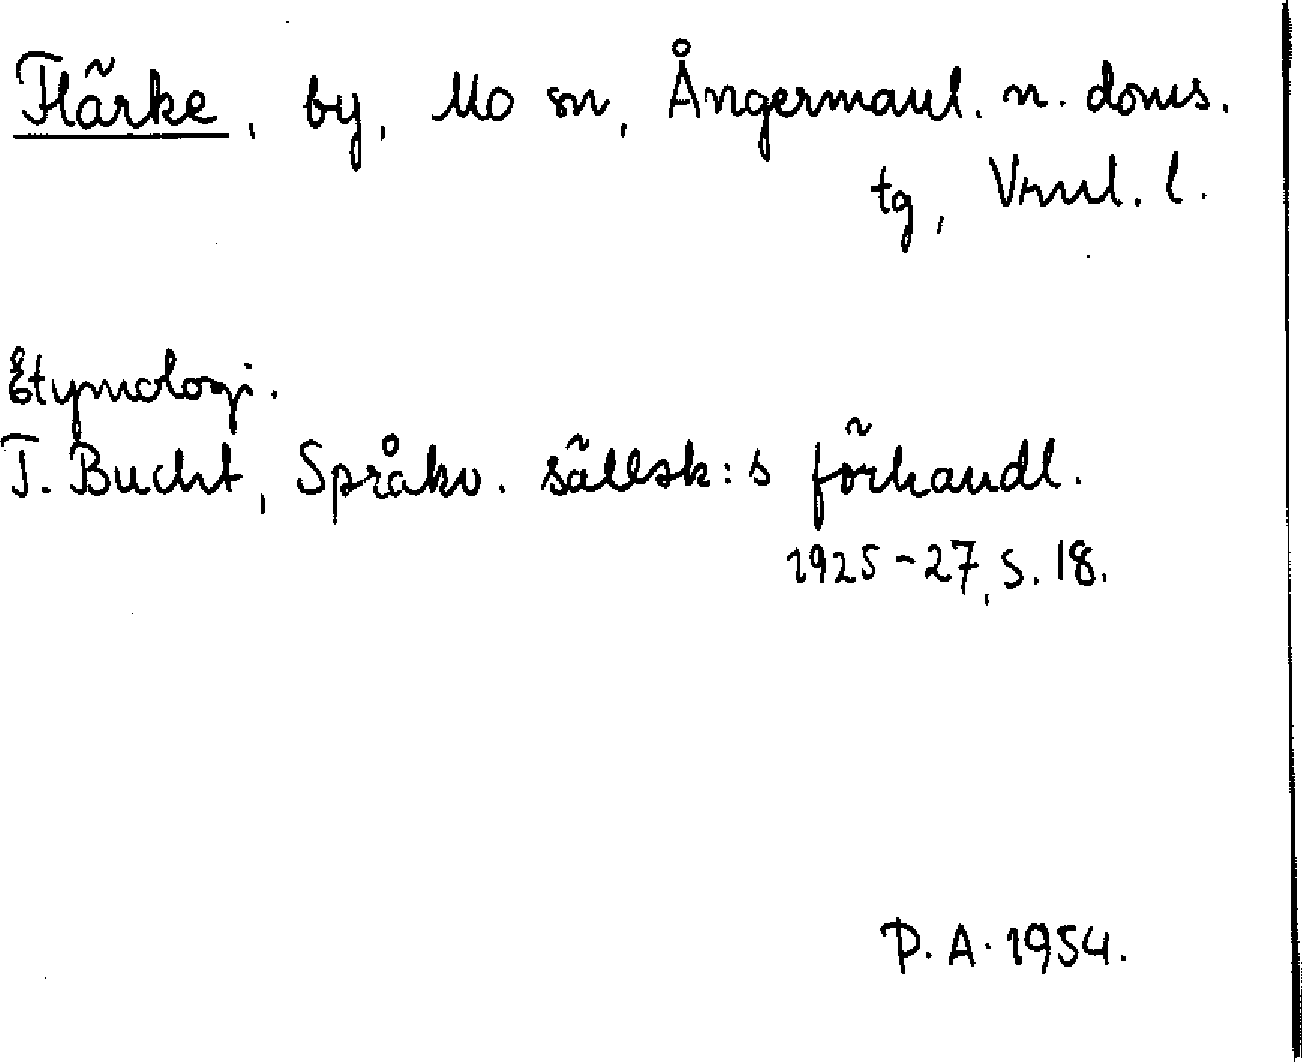 Flärke, by, Mo sn, Ångermanl. n. doms.
tg, Vrnl. l.
Etymologi.
T. Bucht, Språkv. sällsk:s förhandl.
1925-27, S. 18.
P. A. 1954.